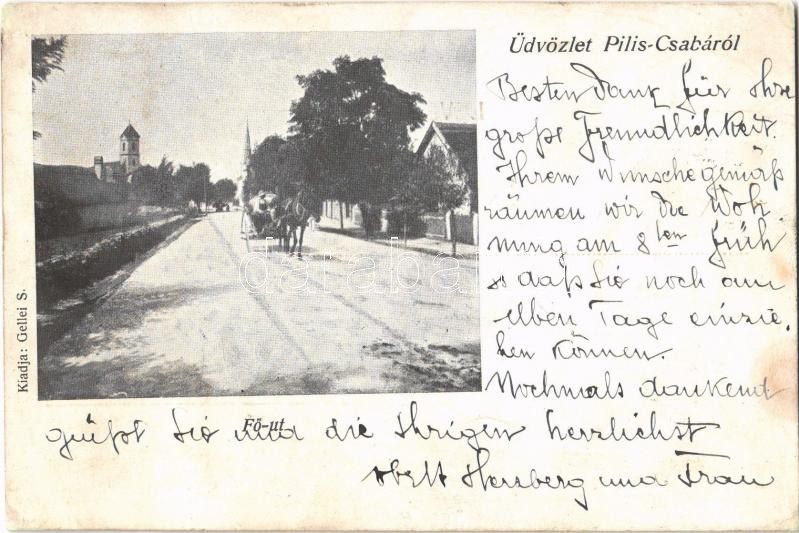 Üdvözlet Pilis-Csabáról
Besten Dank für Ihre
große Freundlichkeit.
Ihrem Wunsche gemäß
räumen wir die Woh
nung am 8ten früh
so daß Sie noch am
selben Tage einzie-
hen können.
Nochmals dankend
grüßt Sie und die Ihrigen herzlichst
Herzberg und Frau
Fő-ut
Kiadja: Gellei S.
darabanth